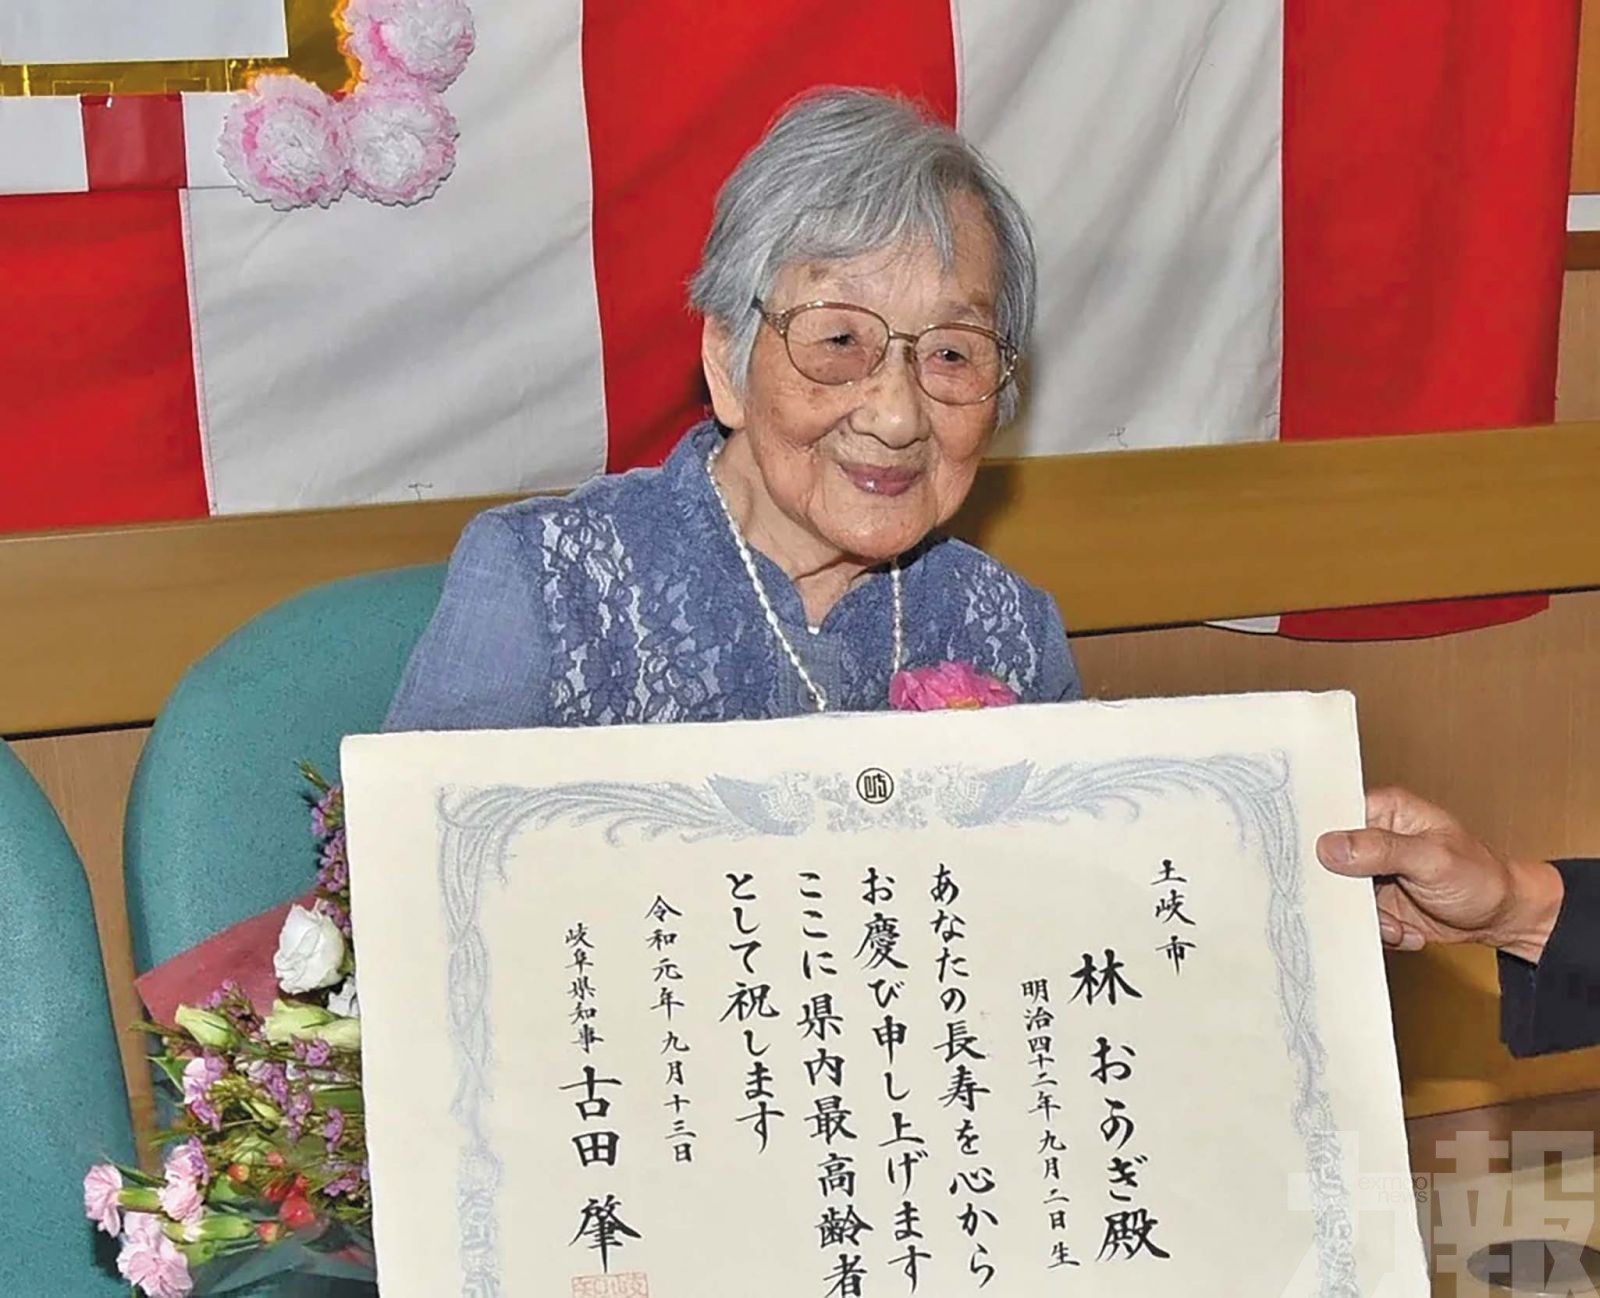 土岐市
林 おかぎ殿
明治四十二年九月二日生
あなたの長寿を心から
お慶び申し上げます
ここに県内最高齢者
として祝します
令和元年九月十三日
岐阜県知事 古田 肇
力報
exmoo
news